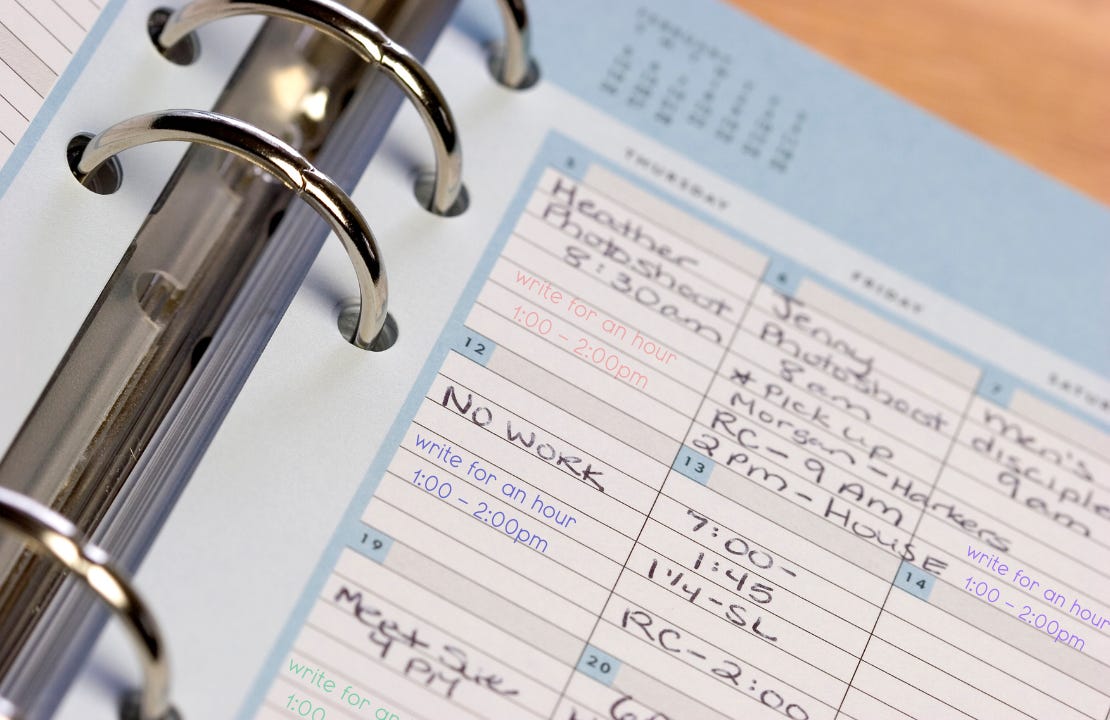 THURSDAY
FRIDAY
5
Heather
Photoshoot
8:30am
write for an hour
1:00 - 2:00pm
6
Jenny
Photoshoot
8am
*Pick up
Morgan - Harkers
RC - 9 Am
2 pm - HOUSE
7
men's
9am
write for an hour
1:00 - 2:00pm
12
NO WORK
write for an hour
1:00 - 2:00pm
13
7:00-
1:45
1 1/4 - SL
RC - 2:00
14
19
Meet Sue
4 PM
write for an
1:00
20